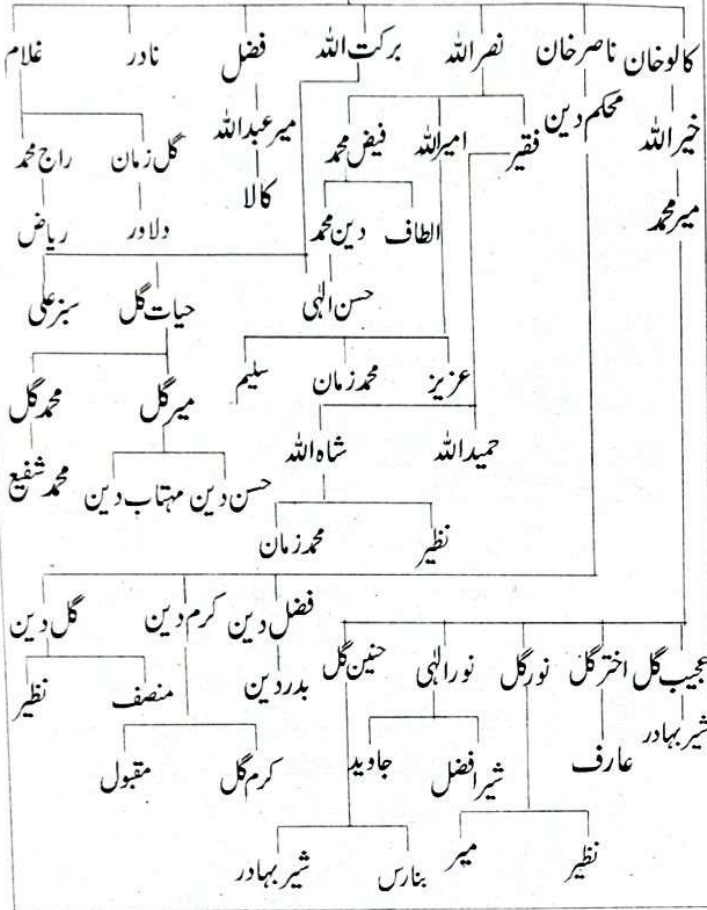 کالوخان ناصرخان نصراللہ برکت اللہ فضل نادر غلام
خیراللہ محکم دین فقیر امیراللہ فیض محمد میرعبداللہ گل زمان راج محمد
میرمحمد الطاف دین محمد کالا دلاور ریاض
حسن الہٰی حیات گل سبزعلی
عزیز محمدزمان سلیم میرگل محمدگل
حمیداللہ شاہ اللہ حسن دین مہتاب دین محمدشفیع
نظیر محمدزمان
فضل دین کرم دین گل دین
عجیب گل اخترگل نورگل نورالہٰی حنین گل بدردین منصف نظیر
شیربہادر عارف شیرافضل جاوید کرم گل مقبول
نظیر میر بنارس شیربہادر